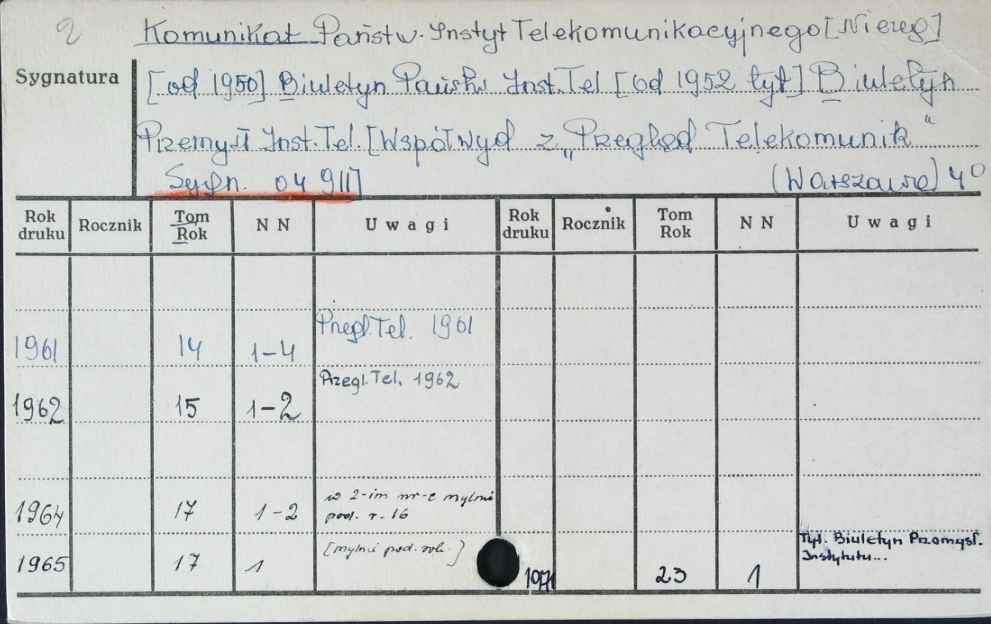 2 Komunikat Państw. Instyt Telekomunikacyjnego [Niereg]
Sygnatura [od 1950] Biuletyn Państw Inst. Tel [od 1952 tyt] Biuletyn
Przemysł Inst. Tel. [Współwyd z „Przegląd Telekomunik"
Sygn. 04 911] (Warszawa) 4°
Rok druku Rocznik Tom Rok NN Uwagi Rok druku Rocznik Tom Rok NN Uwagi
1961 14 1-4 Przegl. Tel. 1961
1962 15 1-2 Przegl. Tel. 1962
1964 17 1-2 w 2-im nr-e mylnie
pod. r. 16
1965 17 1 [mylnie pod. rok.] 1971 23 1 Tyt. Biuletyn Przemysł.
Instytutu...